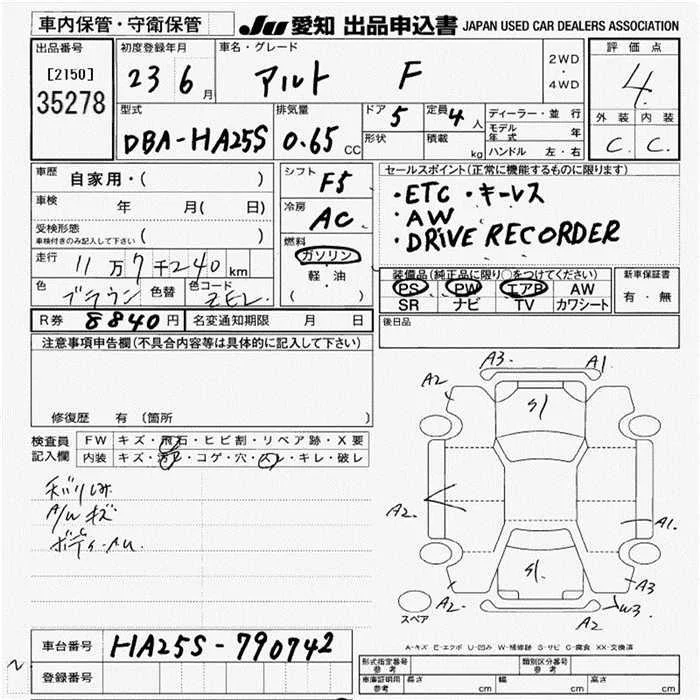 車内保管・守衛保管
JU 愛知 出品申込書 JAPAN USED CAR DEALERS ASSOCIATION
出品番号
[2150]
35278
初度登録年月
23 6月
車名・グレード
アルト F
2WD
・
4WD
評価点
4
外装 内装
C. C.
型式
DBA-HA25S
排気量
0.65 CC
ドア
5
定員
4人
形状
積載
kg
ディーラー・並行
モデル年式 年
ハンドル 左・右
車歴
自家用・( )
車検
年 月( 日)
受検形態
車検付きのみ記入して下さい ( )
走行
11万7千240km
色
ブラウン
色替
色コード
ZEL
シフト
F5
冷房
AC
燃料
ガソリン
軽・油
( )
セールスポイント(正常に機能するものに限ります)
・ETC ・キーレス
・AW
・DRIVE RECORDER
装備品(純正品に限り○をつけてください)
PS PW エアB AW
SR ナビ TV カワシート
新車保証書
有・無
R券 8840円
名変通知期限 月 日
後日品
注意事項申告欄(不具合内容等は具体的に記入して下さい)
修復歴 有 〔箇所 〕
検査員
記入欄
FW キズ・飛石・ヒビ割・リペア跡・X要
内装 キズ・汚レ・コゲ・穴・スレ・キレ・破レ
A/W キズ
A3. A1.
A2
S1
A2. A1.
S1.
A3
A2. W3
A2
スペア
A-キズ E-エクボ U-凹み W-補修跡 S-サビ C-腐食 XX-交換済
車台番号 HA25S-790742
登録番号
形式指定番号
参考
類別区分番号
参考
車庫証明用
参考
長さ cm 幅 cm 高さ cm